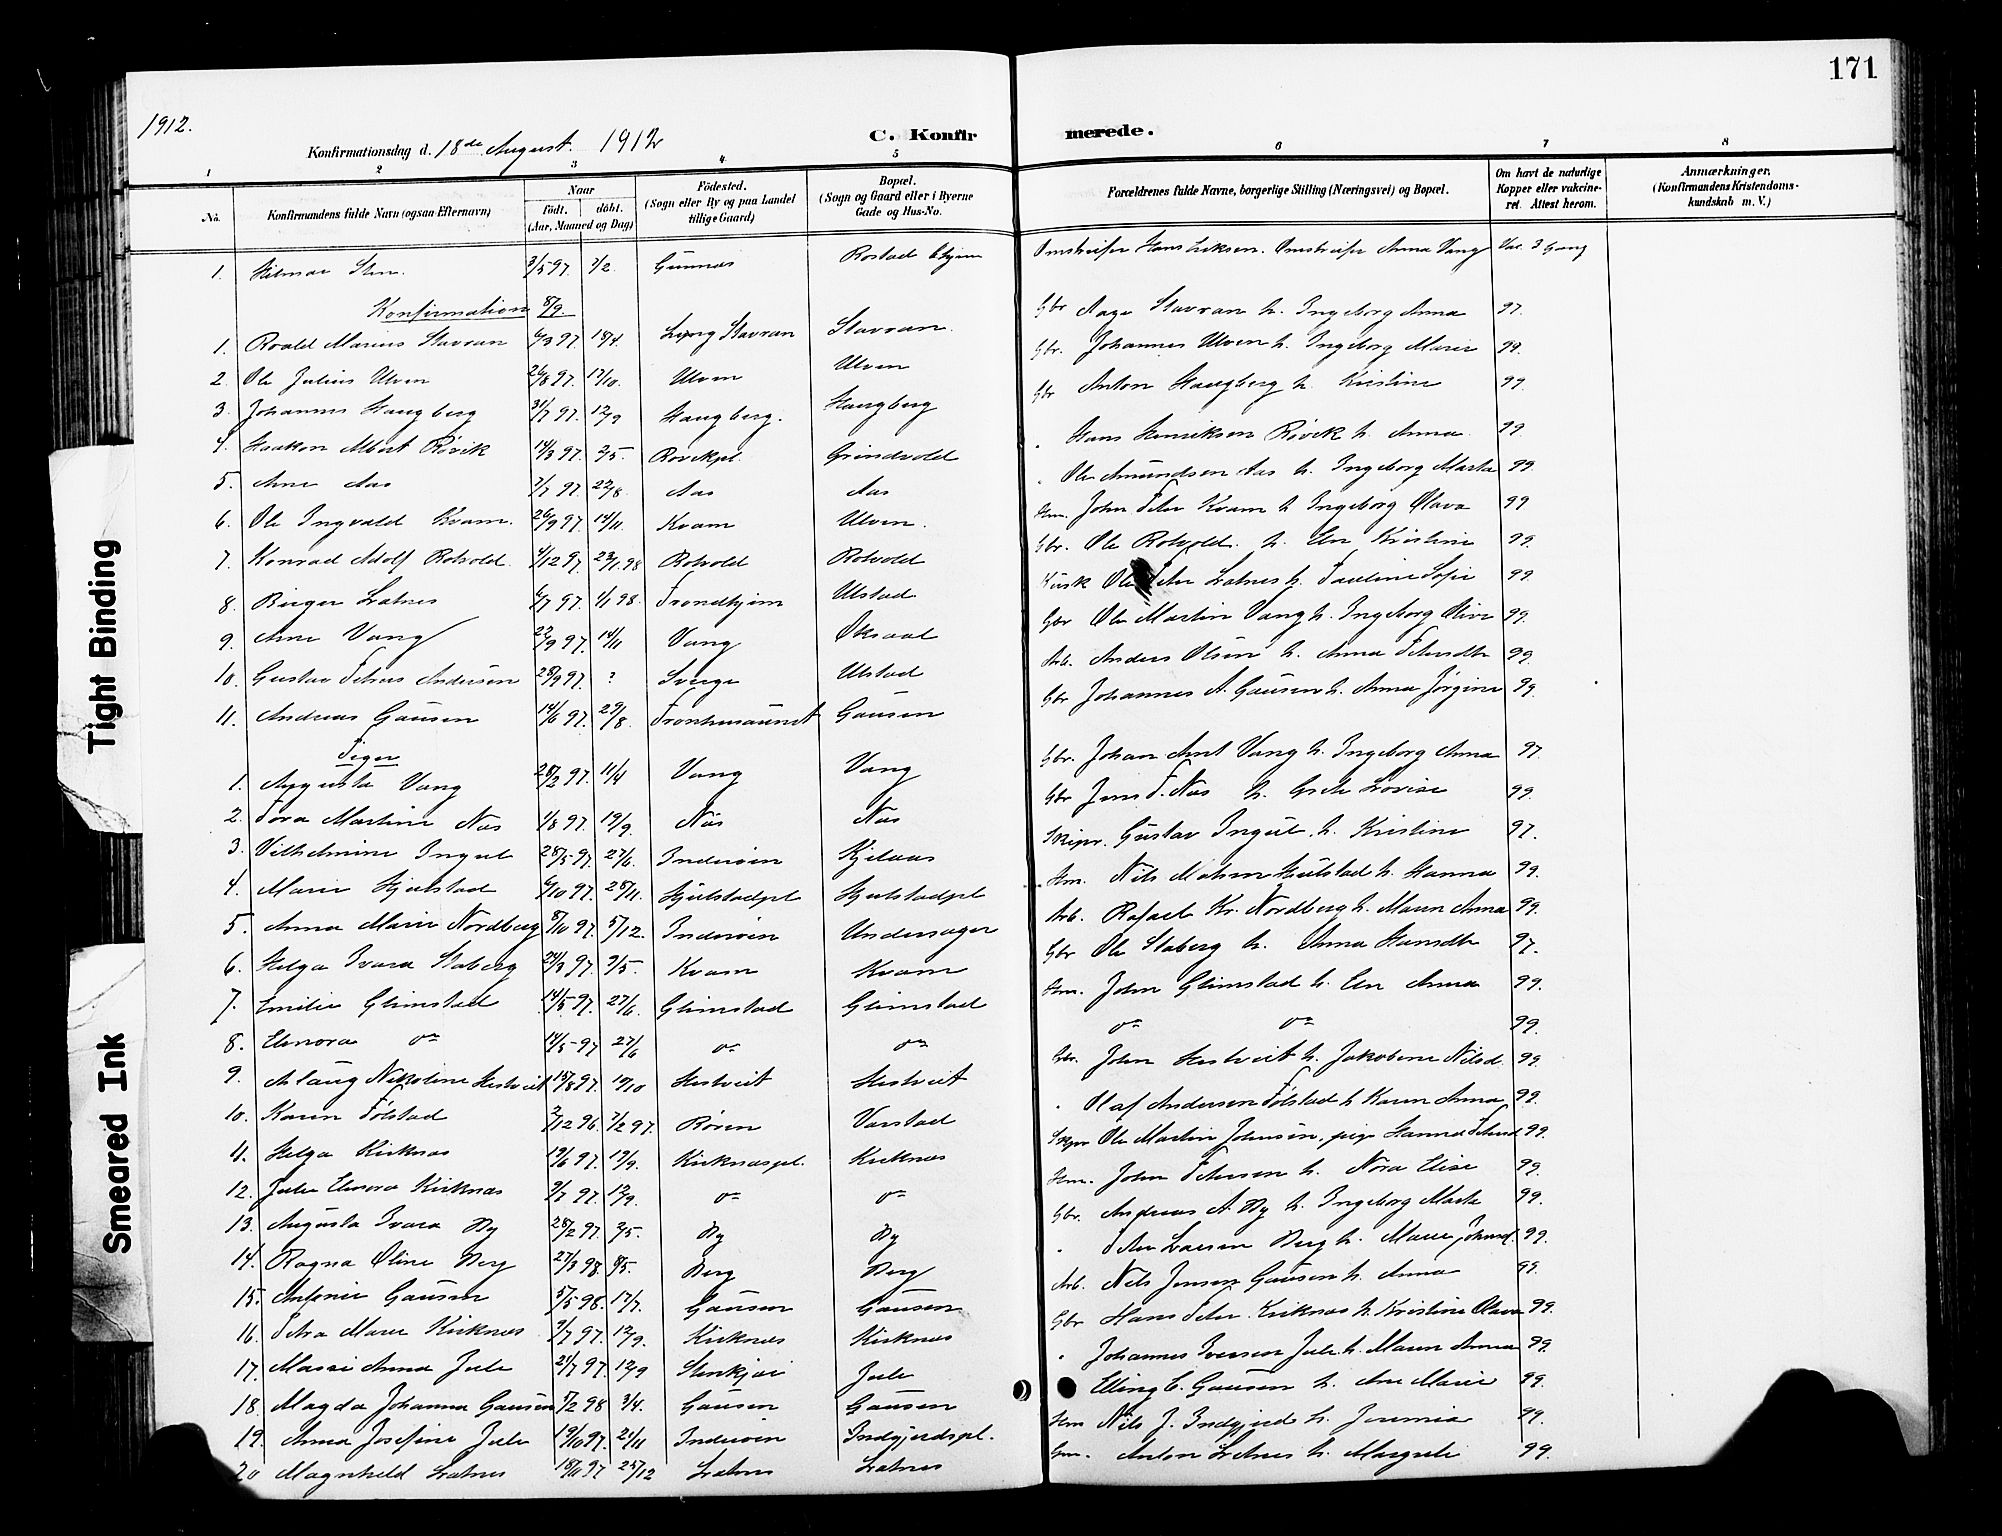 171
1912.
C. Konfirmerede.
Konfirmationsdag d. 18de August. 1912
1 2 3 4 5 6 7 8
No. Konfirmandens fulde Navn (ogsaa Efternavn) Naar Født. døbt. (Aar, Maaned og Dag) Fødested. (Sogn eller By og paa Landet tillige Gaard) Bopæl. (Sogn og Gaard eller i Byerne Gade og Hus-No. Forældrenes fulde Navne, borgerlige Stilling (Næringsvei) og Bopæl. Om havt de naturlige Kopper eller vakcineret. Attest herom. Anmærkninger, (Konfirmandens Kristendomskundskab m. V.)
1. Hilmar 3/5 97. Rostad Hans Anna Vang 3 Gang
Konfirmation 8/9.
1. Roald Marius Stavran 6/3 97. 18/4. Stavran Stavran. Gbr Aage Stavran h. Ingeborg Anna 97.
2. Ole Julius Ulven 26/8 97. 17/10. Ulven Ulven Gbr. Johannes Ulven h. Ingeborg Marie 99.
3. Johannes Haugberg 31/7 97. 12/9 Haugberg. Haugberg Gbr Anton Haugberg h. Kristine 99.
4. Haakon Albert Røvik 14/3 97. 2/5. Røvikpl. Grindvold " Hans Henriksen Røvik h. Anna 99.
5. Arne Aas 7/7 97. 22/8. Aas Aas " Ole Amundsen Aas h. Ingeborg Marta 99.
6. Ole Ingvald Kvam. 26/9 97. 14/11. Kvam Ulven. Hm. John Peter Kvam h Ingeborg Olava 99
7. Konrad Adolf Rotvold. 4/12 97. 23/1 98 Rotvold Rotvold Gbr. Ole Rotvold. h. Elen Kristine 99.
8. Birger Letnes 6/7 97. 1/1 98. Trondhjem Ulstad Kusk Ole Peter Letnes h. Pauline Sofie 99.
9. Arne Vang 22/9 97. 14/11 Vang Gbr Ole Martin Vang h. Ingeborg Oline 99.
10. Gustav Petrus Andersen 28/9 97. ? Sverge Ulstad Arb. Anders Olsen h. Anna Petersdtr 99.
11. Andreas Gausen 14/6 97. 29/8. Gausen Gbr Johannes A. Gausen h. Anna Jørgine 99.
Piger
1. Augusta Vang 28/2 97. 11/4 Vang Vang Gbr. Johan Arnt Vang h. Ingeborg Anna 97.
2. Tora Martine Nas 1/8 97. 19/9. Nas Nas Gbr Jens P. Nas h. Grete Lovise 99.
3. Vilhelmine Ingul 28/5 97. 27/6. Inderøen Kjelaas Skipr. Gustav Ingul. h. Kristine 97.
4. Marie Hjulstad 6/10 97. 28/11. Hjulstadpl Hjulstadpl Hm. Nils Hjulstad h. Hanna 99.
5. Anna Marie Nordberg 8/10 97. 5/12. Inderøen Undersager Arb. Rafael Kr. Nordberg h. Maren Anna 99.
6. Helga Ivara Staberg 24/3 97. 9/5. Kvam Kvam Gbr Ole Staberg h. Anna Hansdtr 97.
7. Emilie Glimstad 14/5 97. 27/6. Glimstad Glimstad Hm. John Glimstad h. Elen Anna 99.
8. Elenora do 14/5 97 27/6 do do do do 99.
9. Aslaug Nikoline Hestveit 15/8 97. 10/10 Hestveit Hestveit Gbr. John Hestveit h. Jakobine Nilsd. 99.
10. Karen Følstad 2/12 96. 7/2 97. Røren Varstad " Olaf Andersen Følstad h Karen Anna 99.
11. Helga Kirknas 19/6 97. 19/9. Kirknaspl. Kirknas Skpr Ole Martin Johnsen, pige Hanna 99.
12. Julie Elenora Kirknas 9/7 97. 12/9. do do Hm. John Petersen h. Nora Elise 99.
13. Augusta Ivara By 28/2 97. 2/5. By By Gbr. Andreas A. By h. Ingeborg Marta 99.
14. Ragna Oline Berg 27/3 98. 8/5. Berg Berg " Peter Larsen Berg h. Marie Johnsd. 99.
15. Gausen 5/5 98. 17/7. Gausen Gausen Arb. Nils Jensen Gausen h. Anna 99.
16. Petra Marie Kirknas 9/7 97. 12/9. Kirknas Kirknas Gbr Hans Peter Kirknas h. Kristine Olava 99.
17. Massi Anna Jule 21/7 97. 12/9 Stenkjær Jule " Johannes Iversen Jule h. Maren Anna 99.
18. Magda Johanna Gausen 17/2 98 3/4. Gausen Gausen Elling C. Gausen h. Ane Marie 99.
19. Anna Josefine Jule 19/10 97. 21/11 Inderøen Indgjerdspl. Hm Nils J. Indgjerd h. Jeremia 99.
20 Magnhild Letnes 18/11 97 25/12 Letnes Letnes Gm. Anton Letnes h. Margrete 99.
Tight Binding
Smeared Ink